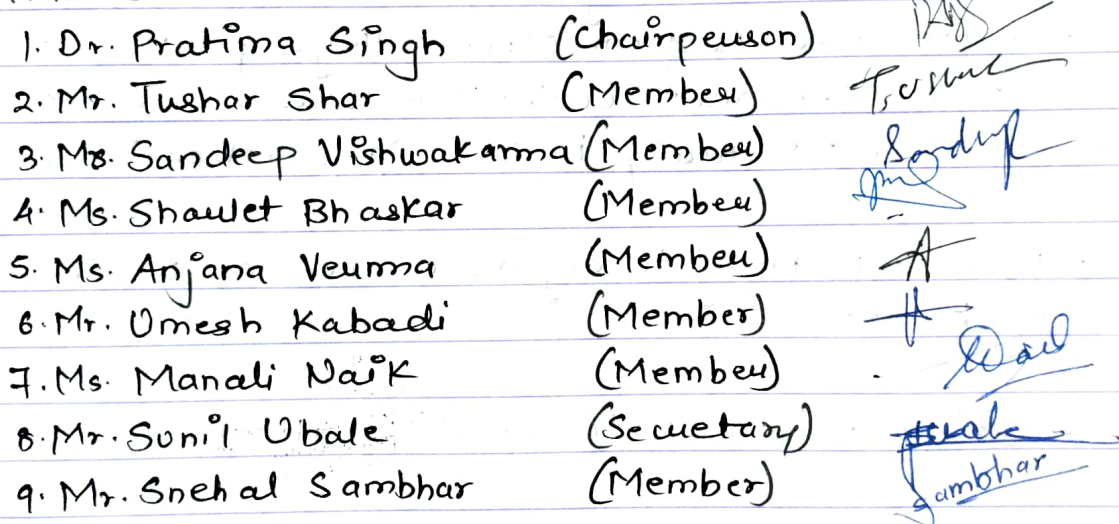 1. Dr. Pratima Singh (Chairperson)
2. Mr. Tushar Shar (Member) Tushar
3. Mr. Sandeep Vishwakarma (Member) Sandeep
4. Ms. Sharlet Bhaskar (Member)
5. Ms. Anjana Verma (Member)
6. Mr. Umesh Kabadi (Member)
7. Ms. Manali Naik (Member)
8. Mr. Sunil Ubale (Secretary)
9. Mr. Snehal Sambhar (Member) Sambhar